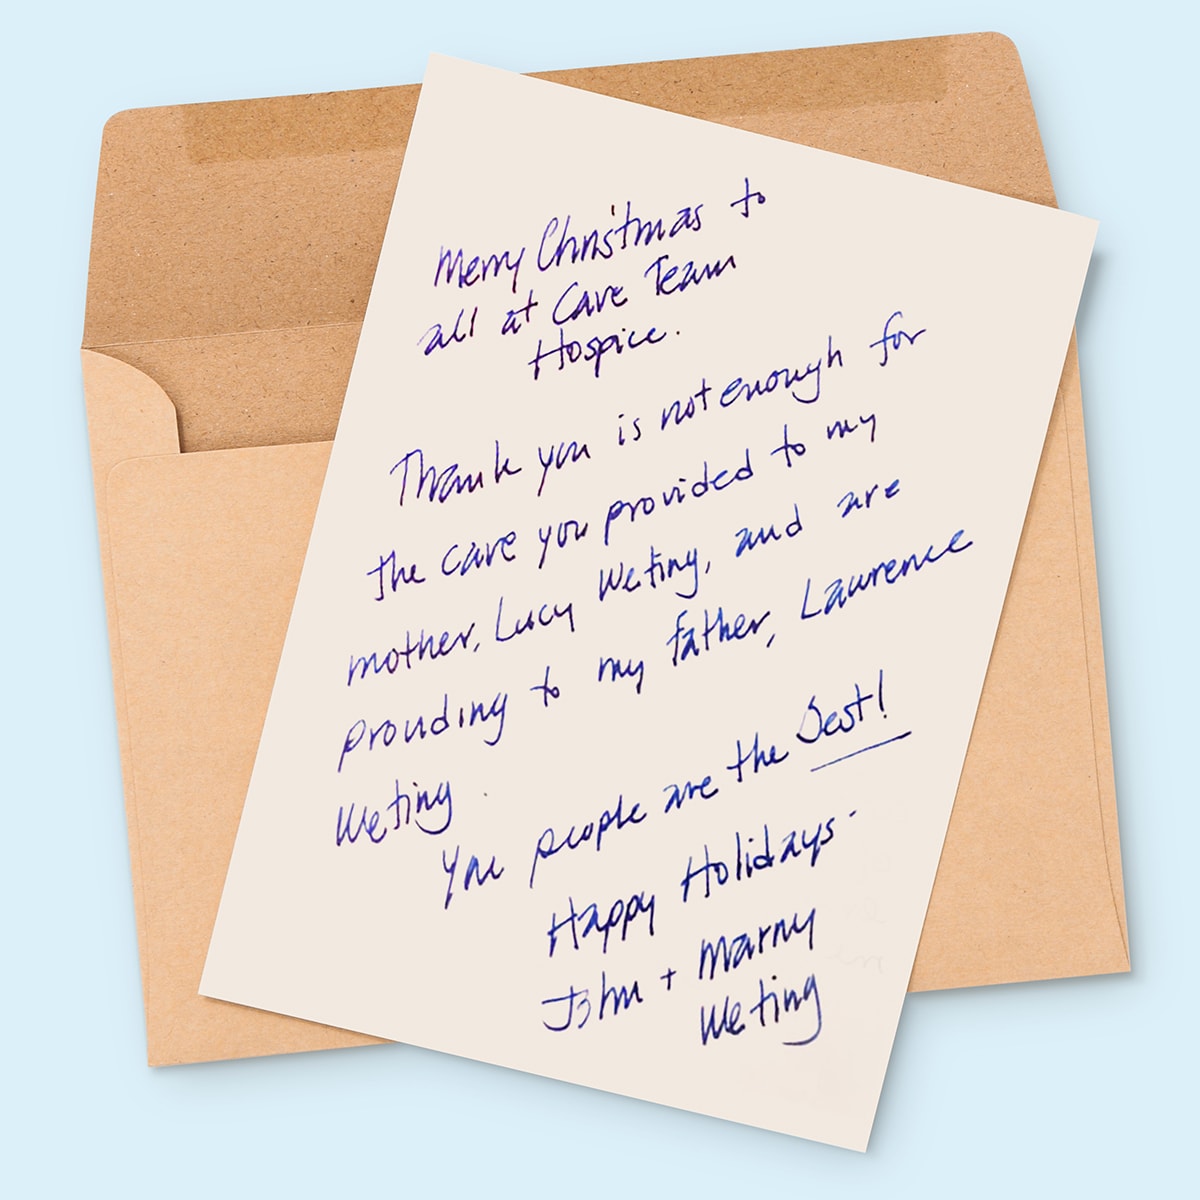 Merry Christmas to
all at Care Team
Hospice.
Thank you is not enough for
the care you provided to my
mother, Lucy Weting, and are
providing to my father, Lawrence
Weting.
You people are the Best!
Happy Holidays-
John + Marny
Weting